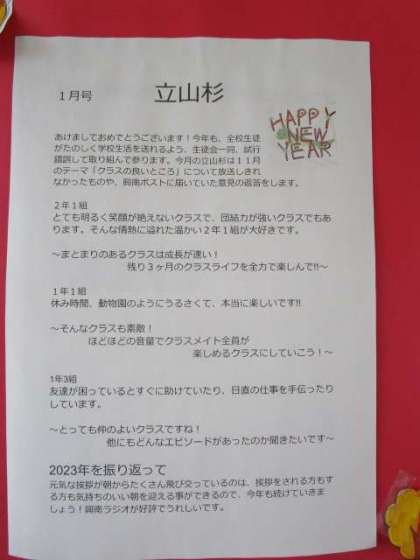 1月号
立山杉
HAPPY
NEW
YEAR
あけましておめでとうございます！今年も、全校生徒
がたのしく学校生活を送れるよう、生徒会一同、試行
錯誤して取り組んで参ります。今月の立山杉は１１月
のテーマ「クラスの良いところ」について放送しきれ
なかったものや、興南ポストに届いていた意見の返答をします。
２年１組
とても明るく笑顔が絶えないクラスで、団結力が強いクラスでもあ
ります。そんな情熱に溢れた温かい２年１組が大好きです。
～まとまりのあるクラスは成長が速い！
残り３ヶ月のクラスライフを全力で楽しんで!!～
１年１組
休み時間、動物園のようにうるさくて、本当に楽しいです!!
～そんなクラスも素敵！
ほどほどの音量でクラスメイト全員が
楽しめるクラスにしていこう！～
1年3組
友達が困っているとすぐに助けていたり、日直の仕事を手伝ったり
しています。
～とっても仲のよいクラスですね！
他にもどんなエピソードがあったのか聞きたいです～
2023年を振り返って
元気な挨拶が朝からたくさん飛び交っているのは、挨拶をされる方もす
る方も気持ちのいい朝を迎える事ができるので、今年も続けていきま
しょう！興南ラジオが好評でうれしいです。